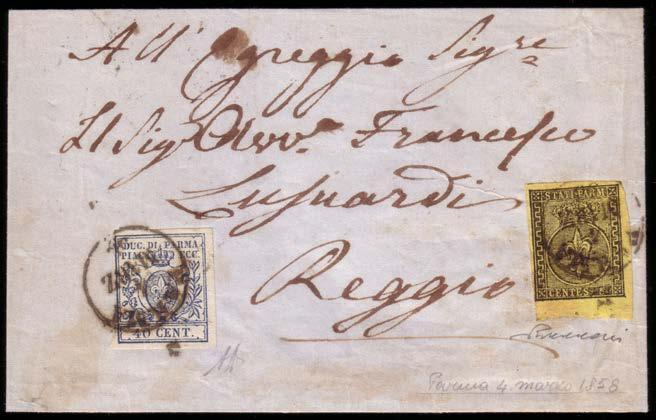 All' Egreggio Sigre
Il Sigr Avvo Francesco
Lusuardi
Reggio
DUC. DI PARMA
PIAC. ECC.
40 CENT.
STATI PARM
CENTES. 5
Parma 4 marzo 1858